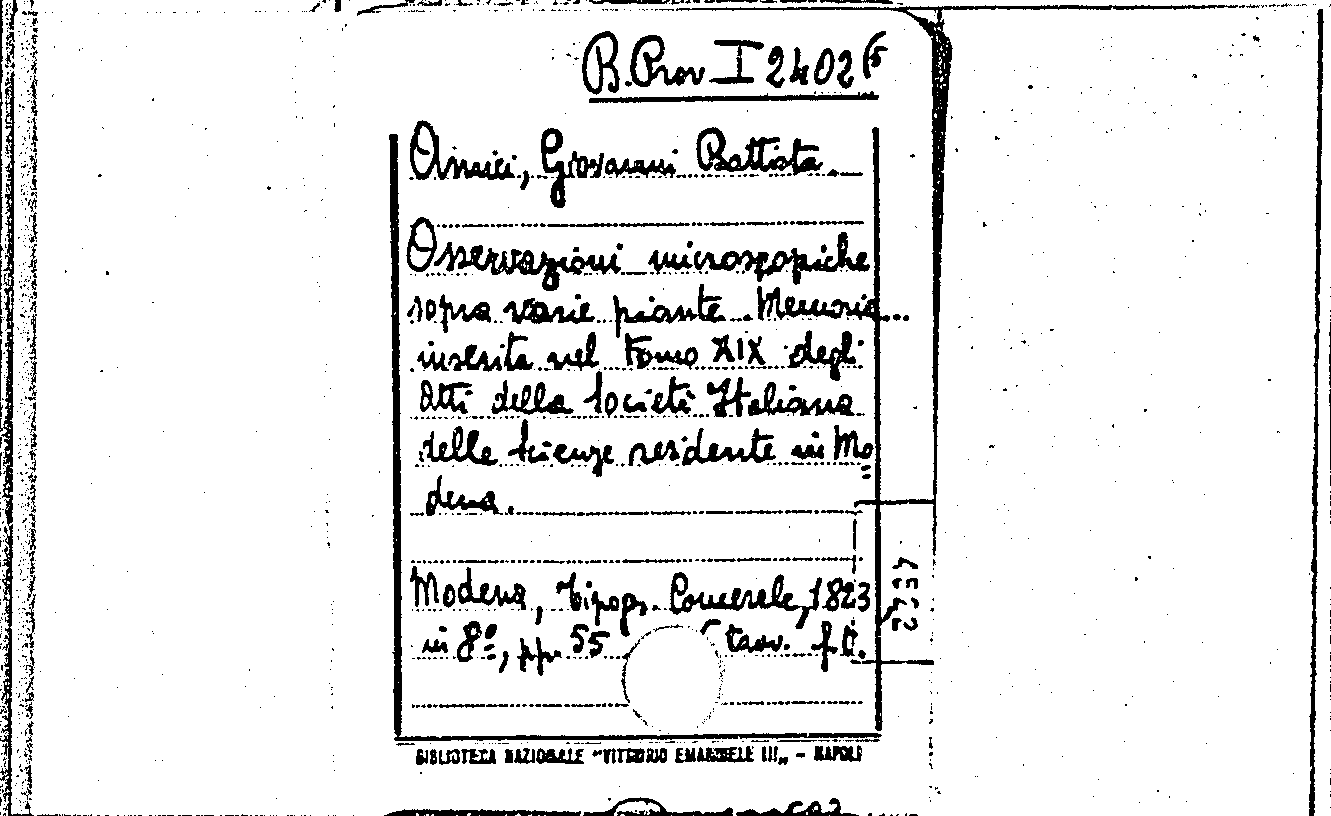 B. Prov. I 2402 (5
Amici, Giovanni Battista.
Osservazioni microscopiche
sopra varie piante. Memoria...
inserita nel Tomo XIX degli
Atti della Società Italiana
delle Scienze residente in Mo=
dena.
Modena, Tipogr. Camerale, 1823
in 8º, pp. 55 tavv. f.t.
BIBLIOTECA NAZIONALE "VITTORIO EMANUELE III„ - NAPOLI